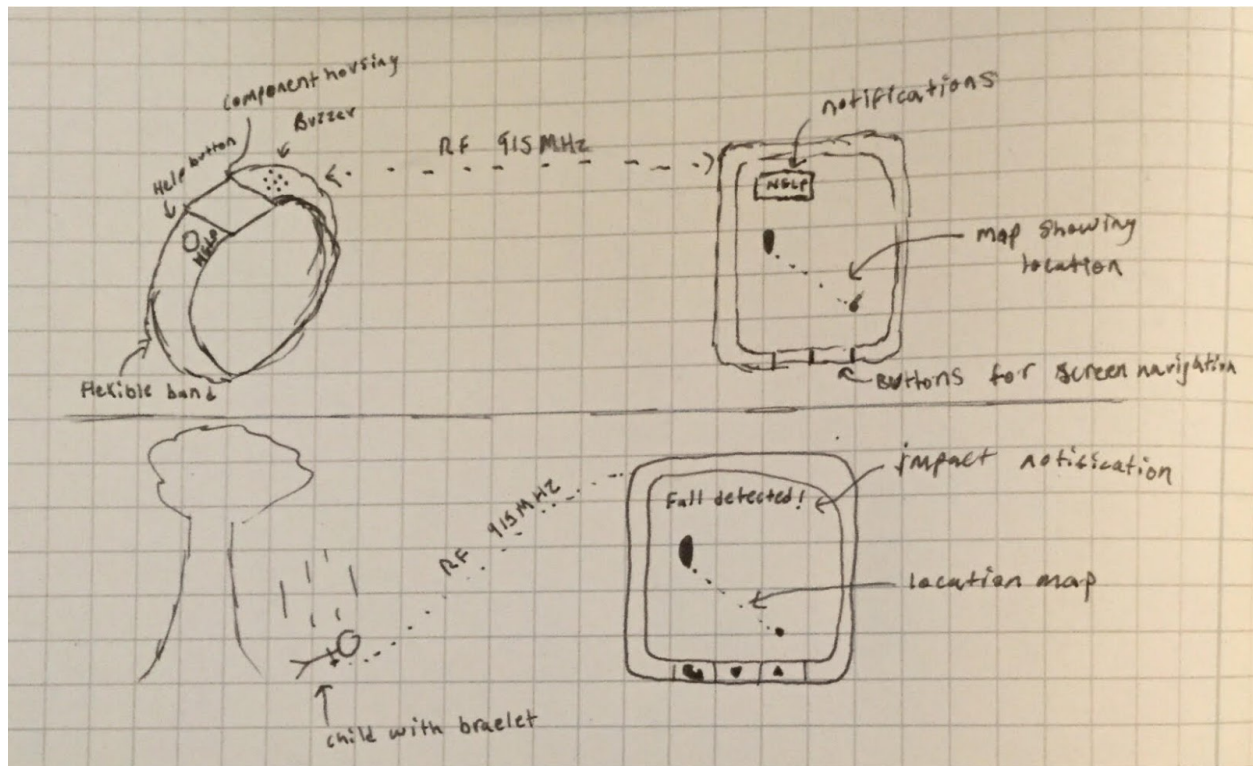 component housing
Buzzer
Help button
HELP
Flexible band
RF 915MHz
notifications
HELP
map showing
location
Buttons for screen navigation
RF 915MHz
child with braelet
Fall detected!
impact notification
location map